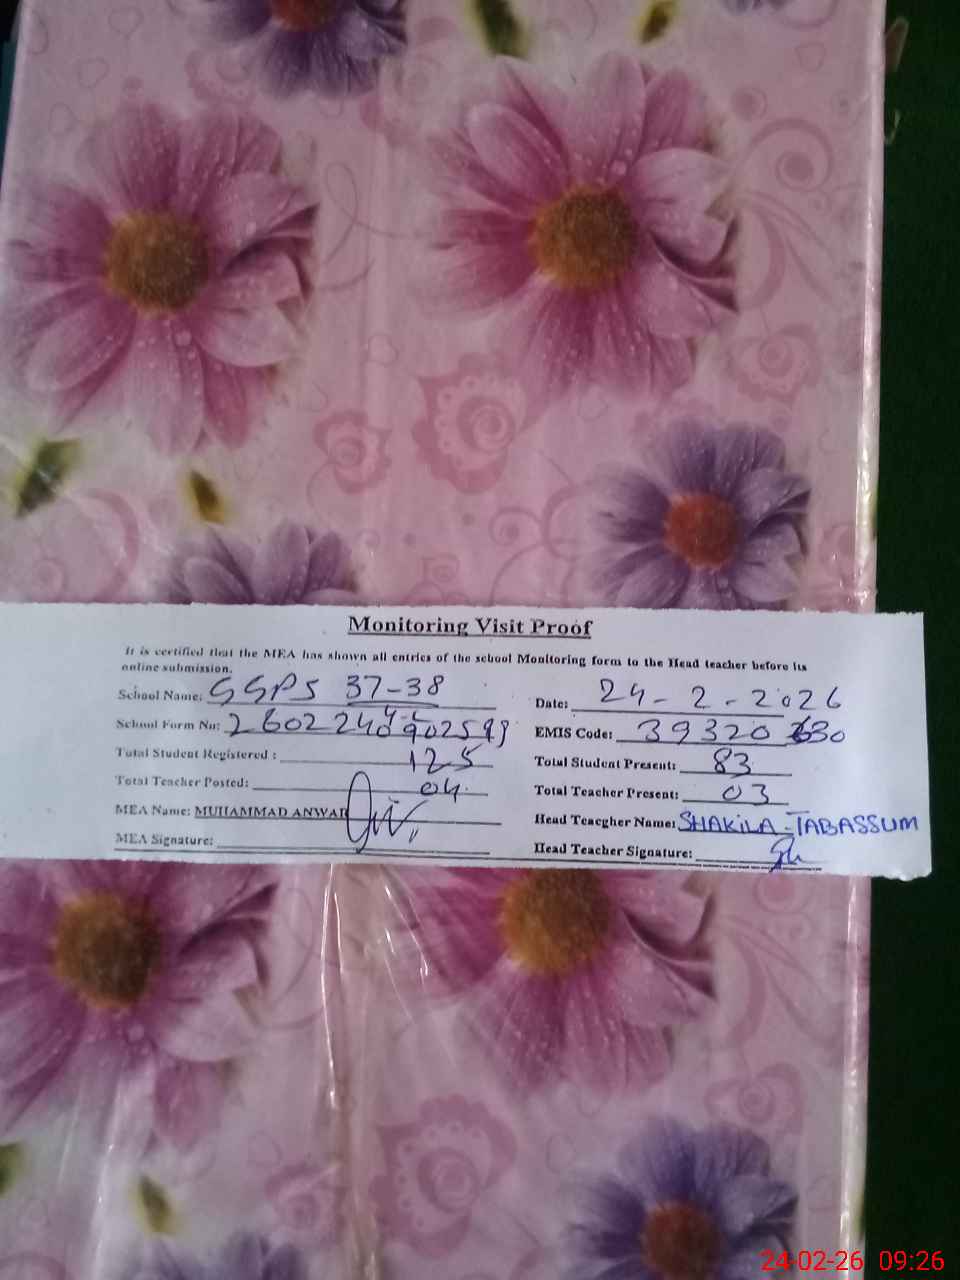 Monitoring Visit Proof
It is certified that the MEA has shown all entries of the school Monitoring form to the Head teacher before its
online submission.
School Name: GGPS 37-38
Date: 24-2-2026
School Form No:
EMIS Code: 39320630
Total Student Registered : 125
Total Student Present: 83
Total Teacher Posted: 04
Total Teacher Present: 03
MEA Name: MUHAMMAD ANWAR
Head Teacgher Name: SHAKILA-TABASSUM
MEA Signature:
Head Teacher Signature:
24-02-26 09:26